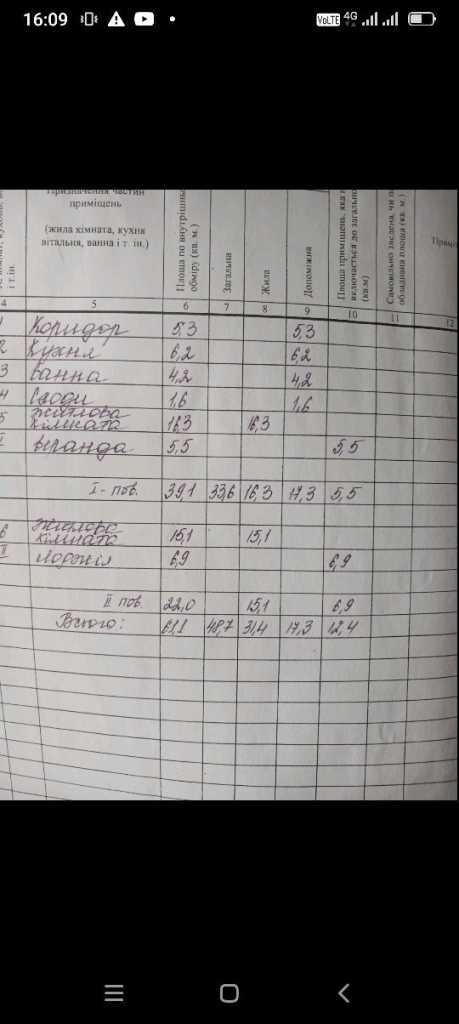 16:09 VoLTE 4G
Призначення частин
приміщень
(жила кімната, кухня
вітальня, ванна і т. ін.)
і т.ін.
Площа по внутрішньо
обміру (кв. м.)
Загальна
Жила
Допоміжна
Площа приміщень, яка
включається до загально
(кв.м)
Самовільно зведена, чи
обладнана площа (кв. м.)
4 5 6 7 8 9 10 11 12
1 Коридор 5,3 5,3
2 Кухня 6,2 6,2
3 Ванна 4,2 4,2
4 Сходи 1,6 1,6
5 Житлова
кімната 16,3 16,3
I Веранда 5,5 5,5
I - пов. 39,1 33,6 16,3 17,3 5,5
6 Житлова
кімната 15,1 15,1
II Лоджія 6,9 6,9
II пов. 22,0 15,1 6,9
Всього: 61,1 48,7 31,4 17,3 12,4